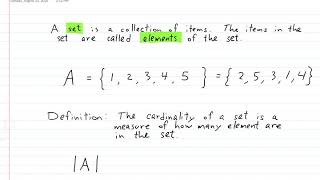 A set is a collection of items. The items in the
set are called elements of the set.
A = {1, 2, 3, 4, 5} = {2, 5, 3, 1, 4}
Definition: The cardinality of a set is a
measure of how many element are
in the set.
|A|